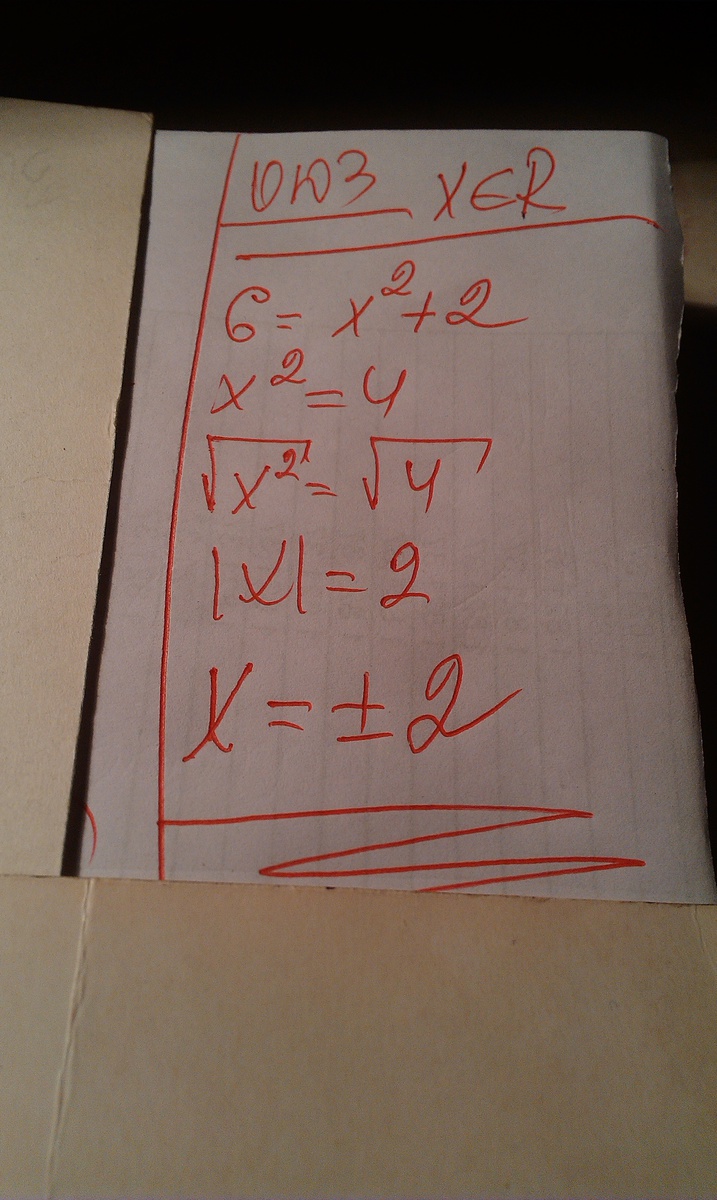 ОЮЗ X∈R
6 = x²+2
x² = 4
√x² = √4
|X| = 2
X = ±2